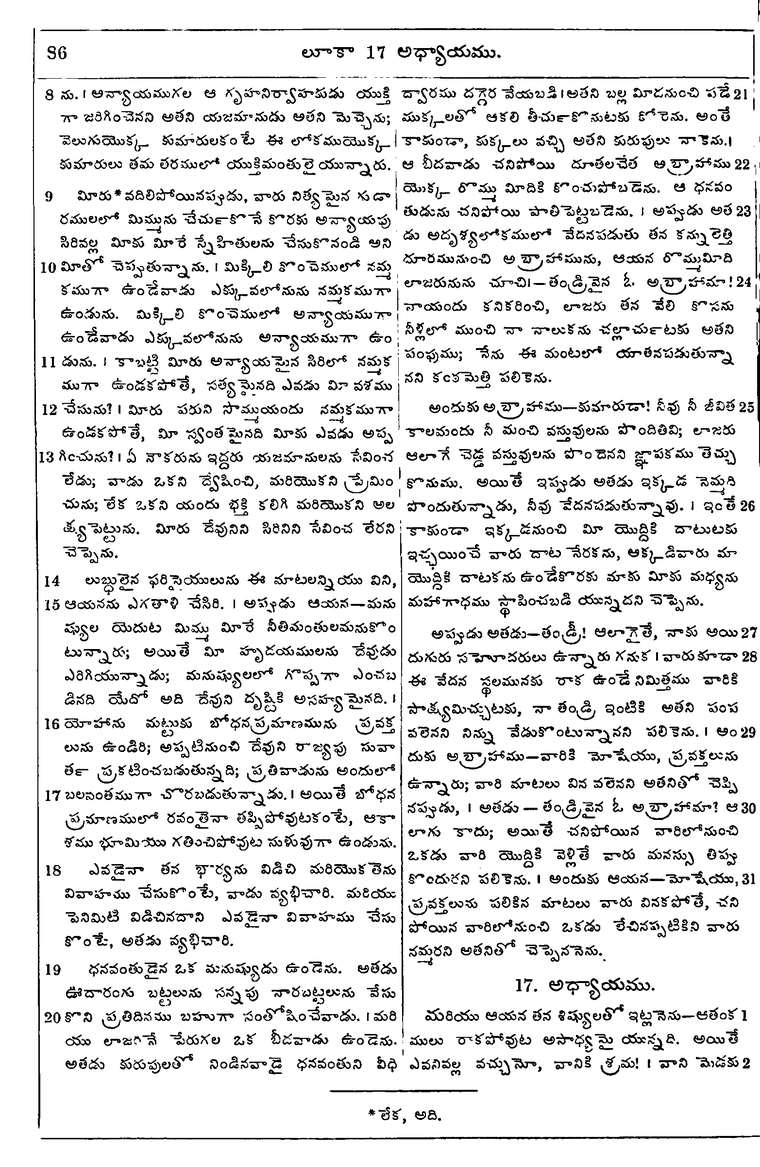 86
లూకా 17 అధ్యాయము.
8 ను. । అన్యాయముగల ఆ గృహనిర్వాహకుడు యుక్తి
గా జరిగించెనని అతని యజమానుడు అతని మెచ్చెను;
వెలుగుయొక్క కుమారులకంటే ఈ లోకముయొక్క
కుమారులు తమ తరములో యుక్తిమంతులై యున్నారు.
9 మీరు* వదిలిపోయినప్పుడు, వారు నిత్యమైన గుడా
రములలో మిమ్మును చేర్చుకొనే కొరకు అన్యాయపు
సిరివల్ల మీకు మీరే స్నేహితులను చేసుకొనండి అని
10 మీతో చెప్పుతున్నాను. । మిక్కిలి కొంచెములో నమ్మ
కముగా ఉండేవాడు ఎక్కువలోనును నమ్మకముగా
ఉండును. మిక్కిలి కొంచెములో అన్యాయముగా
ఉండేవాడు ఎక్కువలోనును అన్యాయముగా ఉం
11 డును. । కాబట్టి మీరు అన్యాయమైన సిరిలో నమ్మక
ముగా ఉండకపోతే, సత్యమైనది ఎవడు మీ వశము
12 చేసును? । మీరు పరుని సొమ్ముయందు నమ్మకముగా
ఉండకపోతే, మీ స్వంతమైనది మీకు ఎవడు అప్ప
13 గించును? । ఏ నౌకరును ఇద్దరు యజమానులను సేవించ
లేడు; వాడు ఒకని ద్వేషించి, మరియొకని ప్రేమిం
చును; లేక ఒకని యందు భక్తి కలిగి మరియొకని అల
క్ష్యపెట్టును. మీరు దేవునిని సిరినిని సేవించ లేరని
చెప్పెను.
14 లుబ్ధులైన ఫరిసైయులును ఈ మాటలన్నియు విని,
15 ఆయనను ఎగతాళి చేసిరి. । అప్పుడు ఆయన—మను
ష్యుల యెదుట మిమ్ము మీరే నీతిమంతులమనుకొం
టున్నారు; అయితే మీ హృదయములను దేవుడు
ఎరిగియున్నాడు; మనుష్యులలో గొప్పగా ఎంచబ
డినది యేదో అది దేవుని దృష్టికి అసహ్యమైనది. ।
16 యోహాను మట్టుకు బోధనప్రమాణమును ప్రవక్త
లును ఉండిరి; అప్పటినుంచి దేవుని రాజ్యపు సువా
ర్త ప్రకటించబడుతున్నది; ప్రతివాడును అందులో
17 బలసంతముగా చొరబడుతున్నాడు. । అయితే బోధన
ప్రమాణములో రవంతైనా తప్పిపోవుటకంటే, ఆకా
శము భూమియు గతించిపోవుట సుళువుగా ఉండును.
18 ఎవడైనా తన భార్యను విడిచి మరియొకతెను
వివాహము చేసుకొంటే, వాడు వ్యభిచారి. మరియు
పెనిమిటి విడిచినదాని ఎవడైనా వివాహము చేసు
కొంటే, అతడు వ్యభిచారి.
19 ధనవంతుడైన ఒక మనుష్యుడు ఉండెను. అతడు
ఊదారంగు బట్టలును సన్నపు నారబట్టలును వేసు
20 కొని ప్రతిదినము బహుగా సంతోషించేవాడు. । మరి
యు లాజరనే పేరుగల ఒక బీదవాడు ఉండెను.
అతడు కురుపులతో నిండినవాడై ధనవంతుని వీధి
ద్వారము దగ్గెర వేయబడి । అతని బల్ల మీదనుంచి పడే 21
ముక్కలతో ఆకలి తీర్చుకొనుటకు కోరెను. అంతే
కాకుండా, కుక్కలు వచ్చి అతని కురుపులు నాకెను. ।
ఆ బీదవాడు చనిపోయి దూతలచేత అబ్రాహాము 22
యొక్క రొమ్ము మీదికి కొంచుపోబడెను. ఆ ధనవం
తుడును చనిపోయి పాతిపెట్టబడెను. । అప్పుడు అత 23
డు అదృశ్యలోకములో వేదనపడుతు తన కన్నులెత్తి
దూరమునుంచి అబ్రాహామును, ఆయన రొమ్ముమీది
లాజరునును చూచి।—తండ్రివైన ఓ అబ్రాహామా! 24
నాయందు కనికరించి, లాజరు తన వేలి కొసను
నీళ్లలో ముంచి నా నాలుకను చల్లార్చుటకు అతని
పంపుము; నేను ఈ మంటలో యాతనపడుతున్నా
నని కంఠమెత్తి పలికెను.
అందుకు అబ్రాహాము—కుమారుడా! నీవు నీ జీవిత 25
కాలమందు నీ మంచి వస్తువులను పొందితివి; లాజరు
ఆలాగే చెడ్డ వస్తువులను పొందెనని జ్ఞాపకము తెచ్చు
కొనుము. అయితే ఇప్పుడు అతడు ఇక్కడ నెమ్మది
పొందుతున్నాడు, నీవు వేదనపడుతున్నావు. । ఇంతే 26
కాకుండా ఇక్కడనుంచి మీ యొద్దికి దాటుటకు
ఇచ్ఛయించే వారు దాట నేరకను, అక్కడివారు మా
యొద్దికి దాటకను ఉండేకొరకు మాకు మీకు మధ్యను
మహాగాధము స్థాపించబడి యున్నదని చెప్పెను.
అప్పుడు అతడు—తండ్రీ! ఆలాగైతే, నాకు అయి 27
దుగురు సహోదరులు ఉన్నారు గనుక । వారుకూడా 28
ఈ వేదన స్థలమునకు రాక ఉండే నిమిత్తము వారికి
సాక్ష్యమిచ్చుటకు, నా తండ్రి ఇంటికి అతని పంప
వలెనని నిన్ను వేడుకొంటున్నానని పలికెను. । అం 29
దుకు అబ్రాహాము—వారికి మోషేయు, ప్రవక్తలును
ఉన్నారు; వారి మాటలు విన వలెనని అతనితో చెప్పి
నప్పుడు, । అతడు — తండ్రివైన ఓ అబ్రాహామా? ఆ 30
లాగు కాదు; అయితే చనిపోయిన వారిలోనుంచి
ఒకడు వారి యొద్దికి వెళ్లితే వారు మనస్సు తిప్పు
కొందురని పలికెను. । అందుకు ఆయన—మోషేయు, 31
ప్రవక్తలును పలికిన మాటలు వారు వినకపోతే, చని
పోయిన వారిలోనుంచి ఒకడు లేచినప్పటికిని వారు
నమ్మరని అతనితో చెప్పెననెను.
17. అధ్యాయము.
మరియు ఆయన తన శిష్యులతో ఇట్లనెను—ఆతంక 1
ములు రాకపోవుట అసాధ్యమై యున్నది. అయితే
ఎవనివల్ల వచ్చునో, వానికి శ్రమ! । వాని మెడకు 2
* లేక, అది.